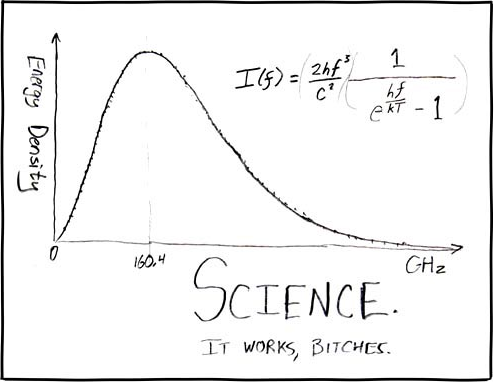 Energy Density
I(f) = (2hf³/c²)(1/(e^(hf/kT) - 1))
0
160.4
GHz
SCIENCE.
IT WORKS, BITCHES.